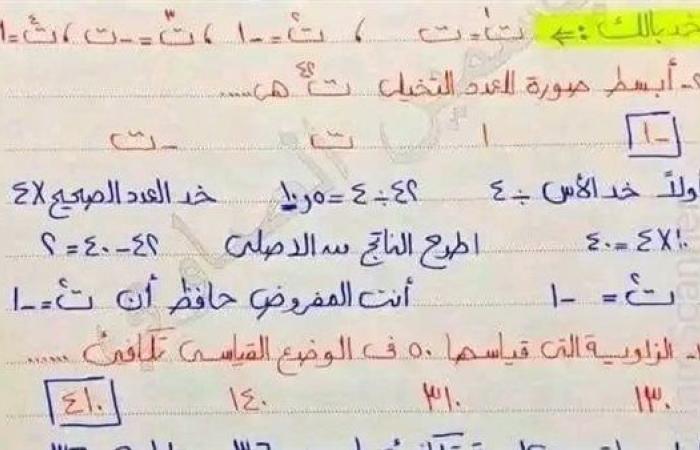 خد بالك :⇐ ت¹ = ت ، ت² = -١ ، ت³ = -ت ، ت⁴ = ١
أبسط صورة للعدد التخيلى ت⁴² هى .....
-١ ١ ت -ت
أولاً خد الأس ÷ ٤ ٤٢ ÷ ٤ = ١٠٫٥ خد العدد الصحيح × ٤
١٠ × ٤ = ٤٠ اطرح الناتج من الأصلى ٤٢ - ٤٠ = ٢
ت² = -١ أنت المفروض حافظ أن ت² = -١
الزاوية التى قياسها ٥٠ فى الوضع القياسى تكافئ ......
١٣٠ ٣١٠ ١٤٠ ٤١٠